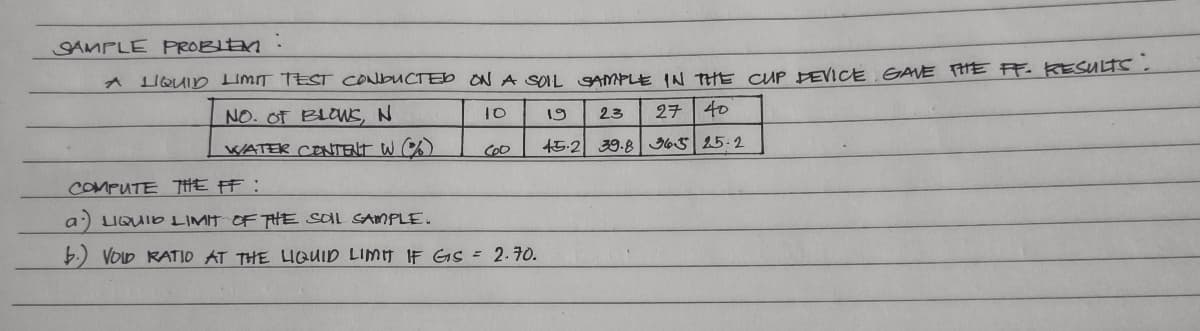 SAMPLE PROBLEM :
A LIQUID LIMIT TEST CONDUCTED ON A SOIL SAMPLE IN THE CUP DEVICE GAVE THE FF. RESULTS :
NO. OF BLOWS, N 10 19 23 27 40
WATER CONTENT W (%) 60 45.2 39.8 36.5 25.2
COMPUTE THE FF :
a.) LIQUID LIMIT OF THE SOIL SAMPLE.
b.) VOID RATIO AT THE LIQUID LIMIT IF GS = 2.70.